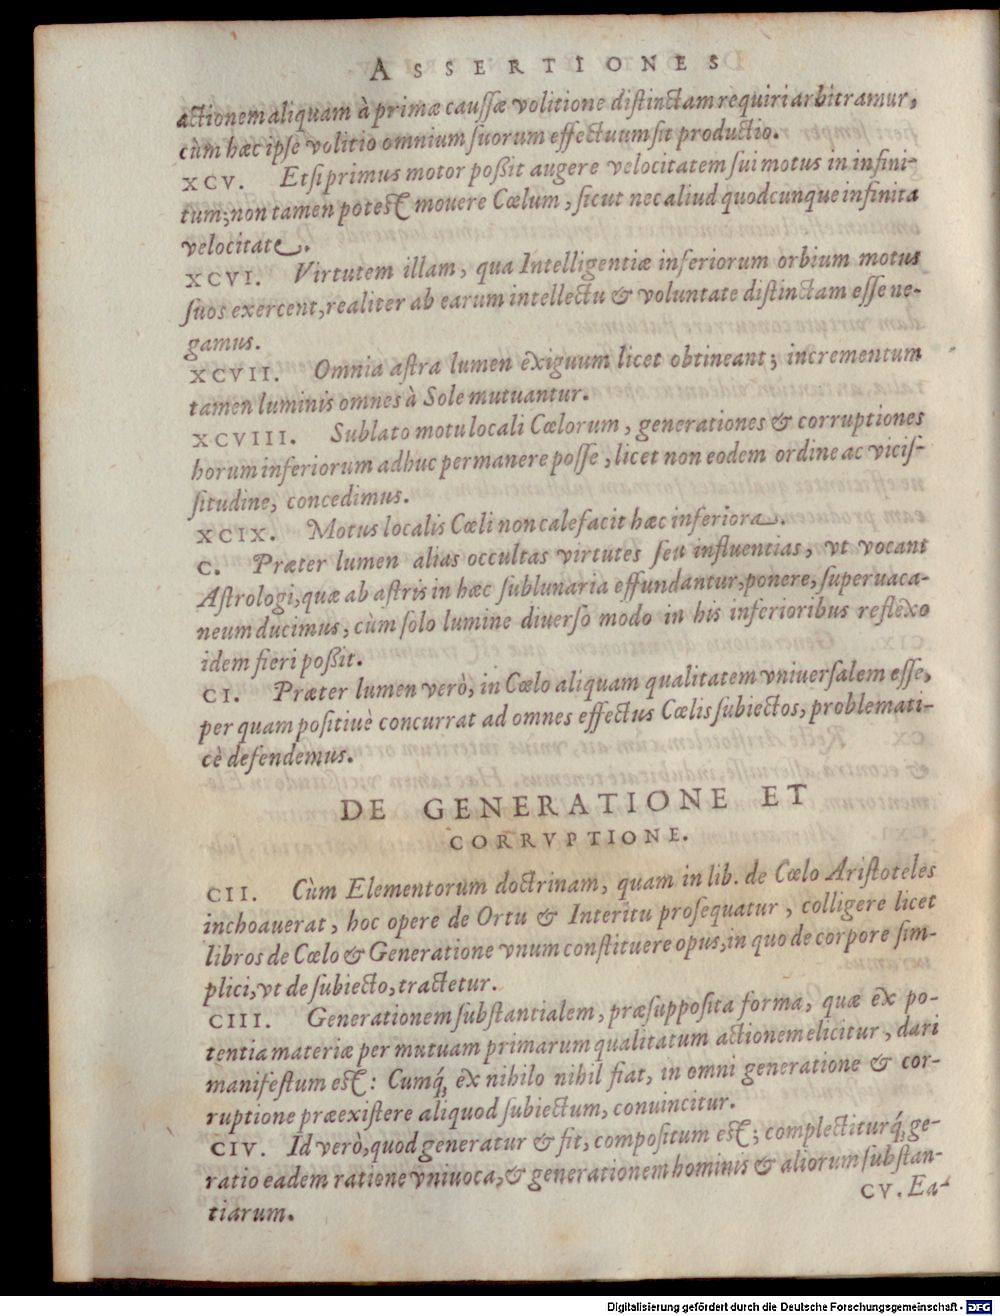 ASSERTIONES
actionem aliquam à primæ caussæ volitione distinctam requiri arbitramur,
cùm hæc ipse volitio omnium suorum effectuum sit productio.
XCV. Etsi primus motor poßit augere velocitatem sui motus in infini-
tum; non tamen potest mouere Cœlum, sicut nec aliud quodcunque infinita
velocitate.
XCVI. Virtutem illam, qua Intelligentiæ inferiorum orbium motus
suos exercent, realiter ab earum intellectu & voluntate distinctam esse ne-
gamus.
XCVII. Omnia astra lumen exiguum licet obtineant; incrementum
tamen luminis omnes à Sole mutuantur.
XCVIII. Sublato motu locali Cœlorum, generationes & corruptiones
horum inferiorum adhuc permanere posse, licet non eodem ordine ac vicis-
situdine, concedimus.
XCIX. Motus localis Cœli non calefacit hæc inferiora.
C. Præter lumen alias occultas virtutes seu influentias, vt vocant
Astrologi, quæ ab astris in hæc sublunaria effundantur, ponere, superuaca-
neum ducimus, cùm solo lumine diuerso modo in his inferioribus reflexo
idem fieri poßit.
CI. Præter lumen verò, in Cœlo aliquam qualitatem vniuersalem esse,
per quam positiuè concurrat ad omnes effectus Cœlis subiectos, problemati-
cè defendemus.
DE GENERATIONE ET
CORRVPTIONE.
CII. Cùm Elementorum doctrinam, quam in lib. de Cœlo Aristoteles
inchoauerat, hoc opere de Ortu & Interitu prosequatur, colligere licet
libros de Cœlo & Generatione vnum constituere opus, in quo de corpore sim-
plici, vt de subiecto, tractetur.
CIII. Generationem substantialem, præsupposita forma, quæ ex po-
tentia materiæ per mutuam primarum qualitatum actionem elicitur, dari
manifestum est: Cumq́ ex nihilo nihil fiat, in omni generatione & cor-
ruptione præexistere aliquod subiectum, conuincitur.
CIV. Id verò, quod generatur & fit, compositum est; complectiturq́ ge-
ratio eadem ratione vniuoca, & generationem hominis & aliorum substan-
tiarum.
CV. Ea-
Digitalisierung gefördert durch die Deutsche Forschungsgemeinschaft - DFG